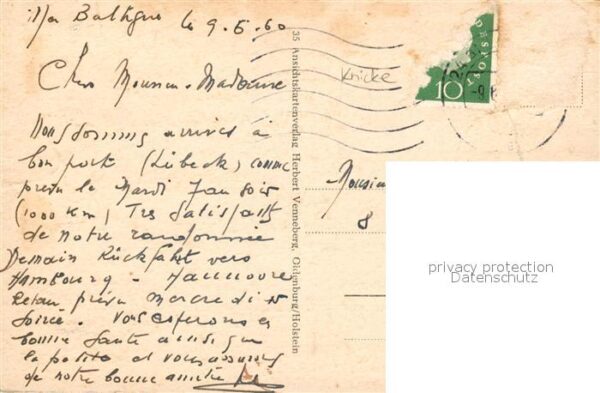 Mer Baltique le 9.6.60
Chers Monsieur - Madame
Nous sommes arrivés à
bon port (Lübeck) comme
prévu le Mardi 7 au soir
(1000 Km) Très satisfaits
de notre randonnée
Demain Rückfahrt vers
Hambourg - Hannovre
Retour prévu mercredi 15
soirée. Vous espérons en
bonne santé ainsi que
la petite et vous assurons
de notre bonne amitié
35 Ansichtskartenverlag Herbert Venneberg, Oldenburg/Holstein
Knicke
10
Monsieur
8
privacy protection
Datenschutz